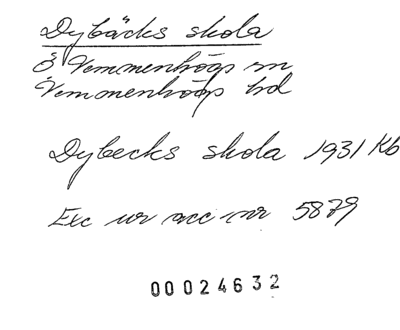 Dybäcks skola
Ö Vemmenhögs sn
Vemmenhögs hd
Dybecks skola 1931 Kb
Exc ur acc nr 5879
00024632